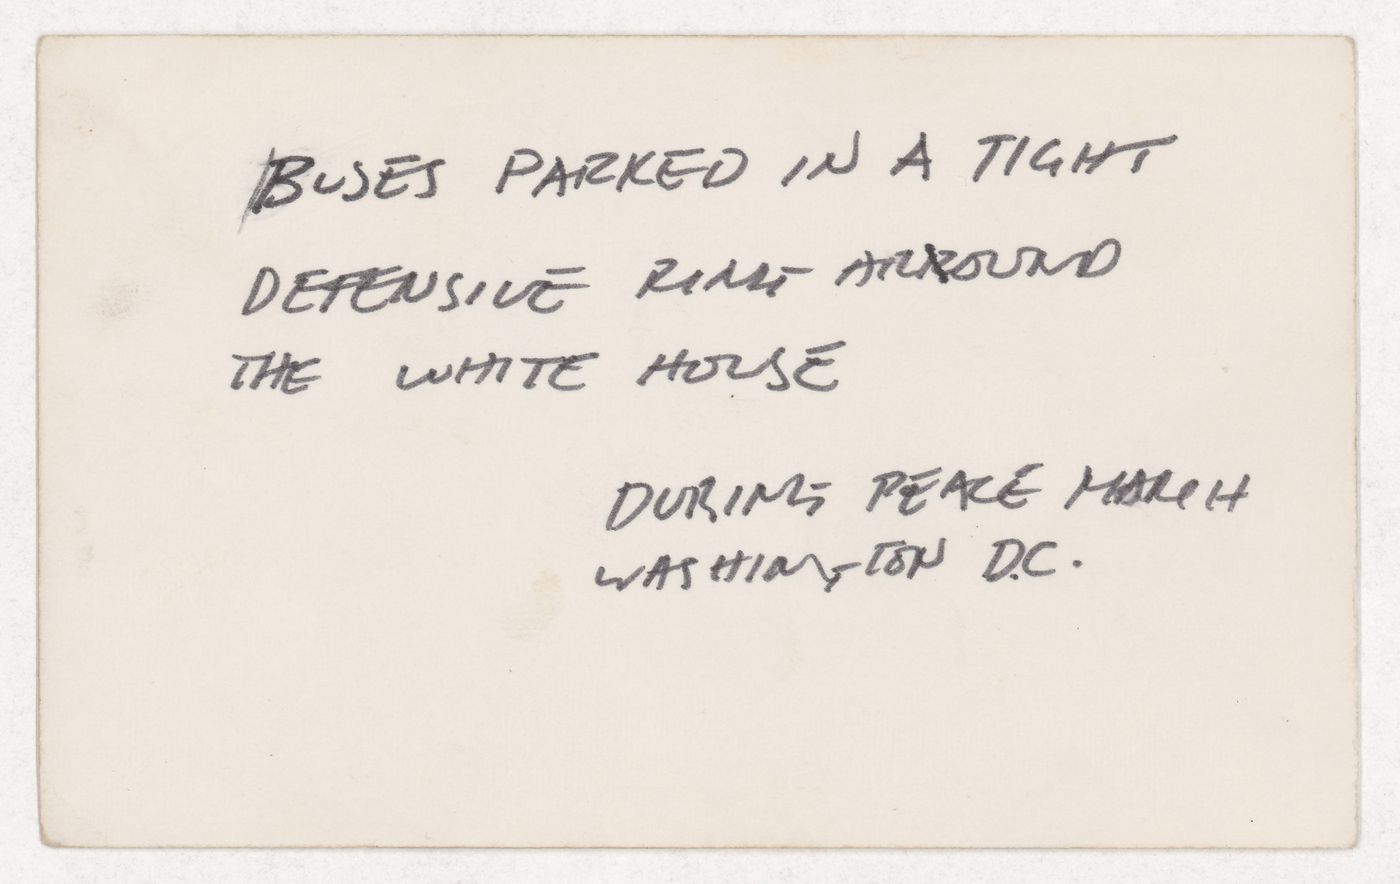 BUSES PARKED IN A TIGHT
DEFENSIVE RING AROUND
THE WHITE HOUSE
DURING PEACE MARCH
WASHINGTON D.C.